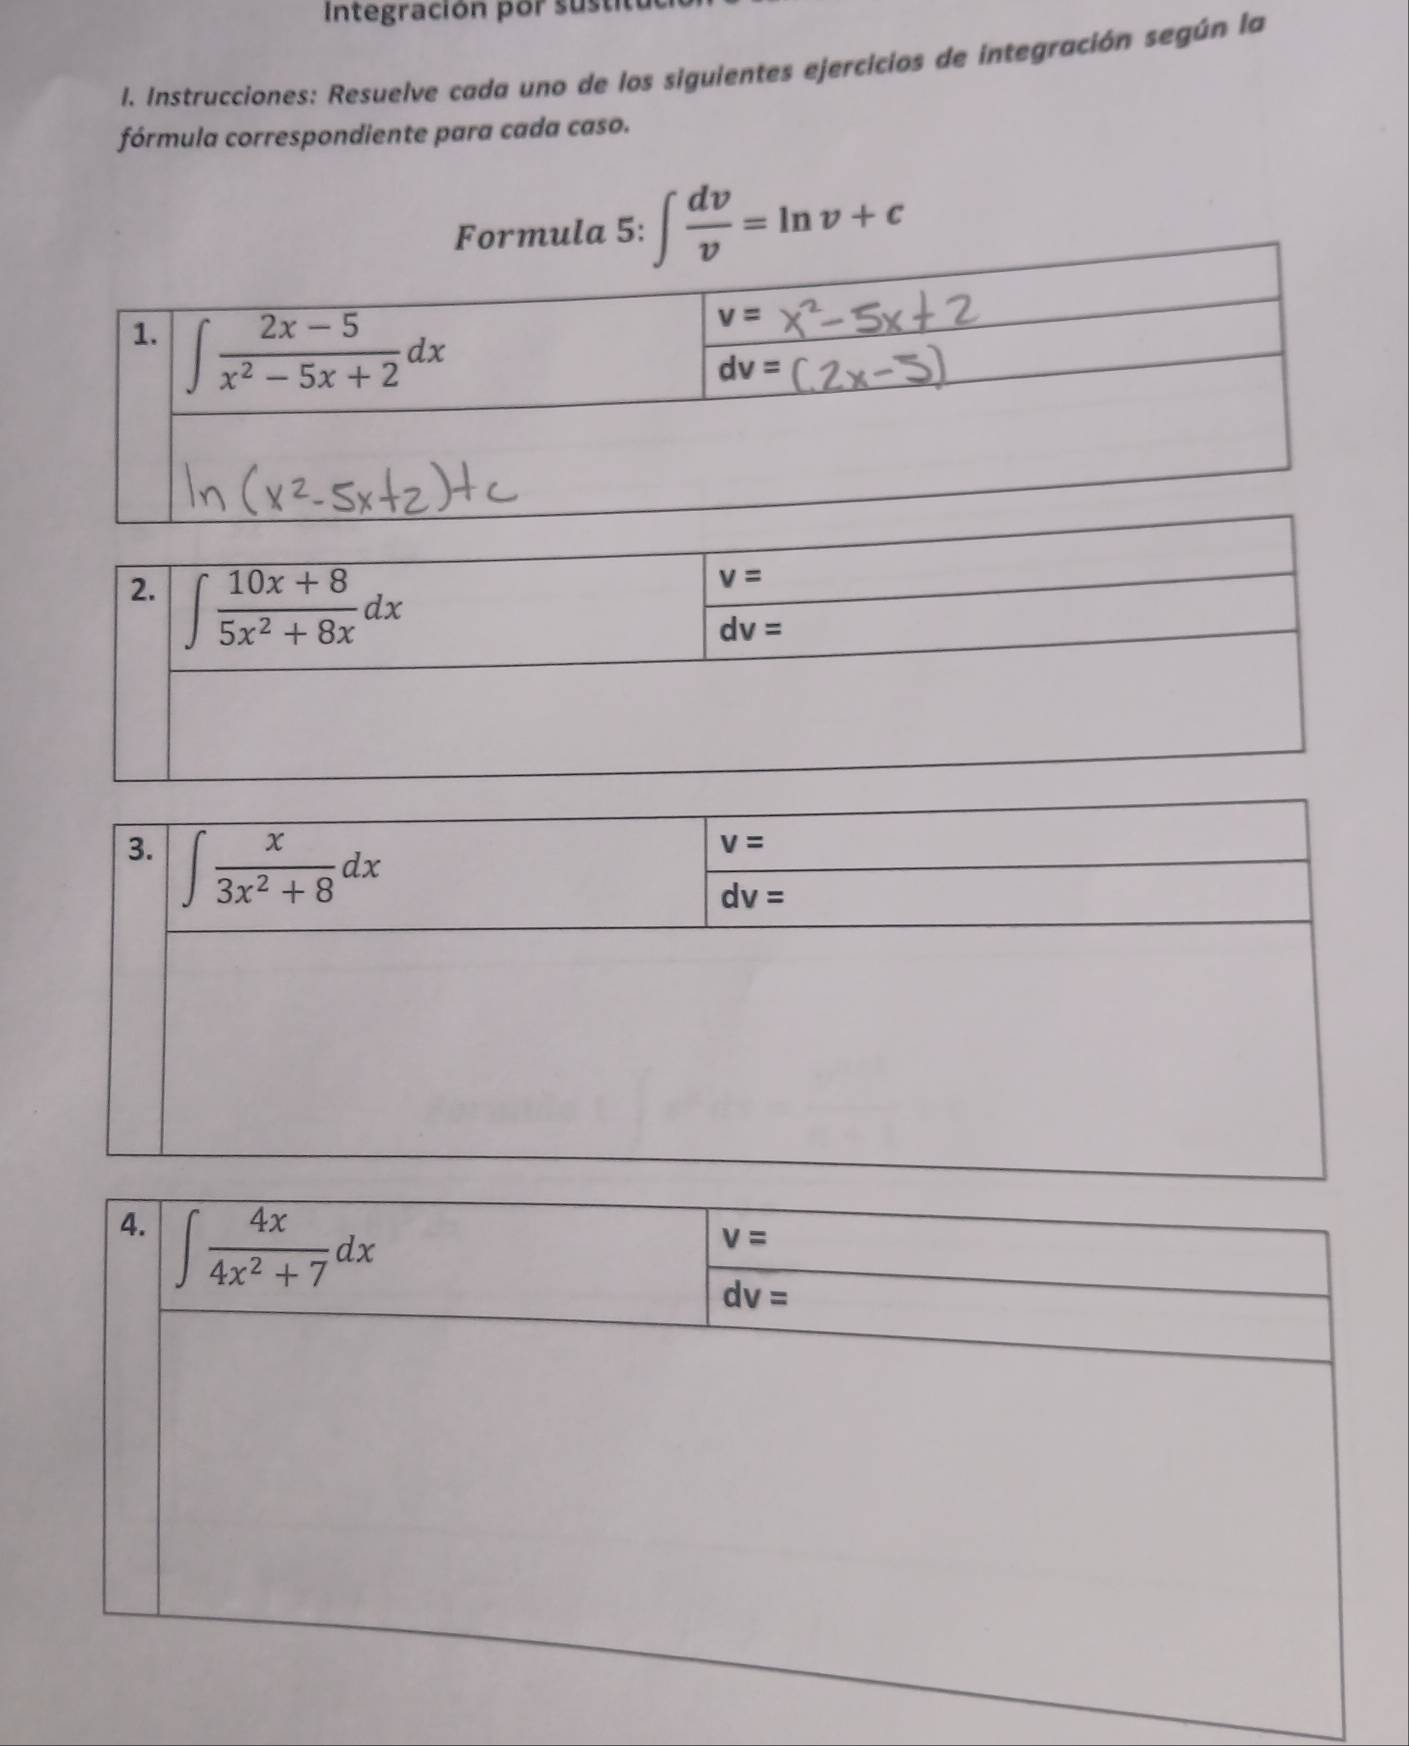 Integración por
I. Instrucciones: Resuelve cada uno de los siguientes ejercicios de integración según la
fórmula correspondiente para cada caso.
Formula 5: ∫ dv/v = ln v + c
1. ∫ (2x − 5)/(x² − 5x + 2) dx
v = x² - 5x + 2
dv = (2x - 5)
ln (x² - 5x + 2) + c
2. ∫ (10x + 8)/(5x² + 8x) dx
v =
dv =
3. ∫ x/(3x² + 8) dx
v =
dv =
4. ∫ 4x/(4x² + 7) dx
v =
dv =